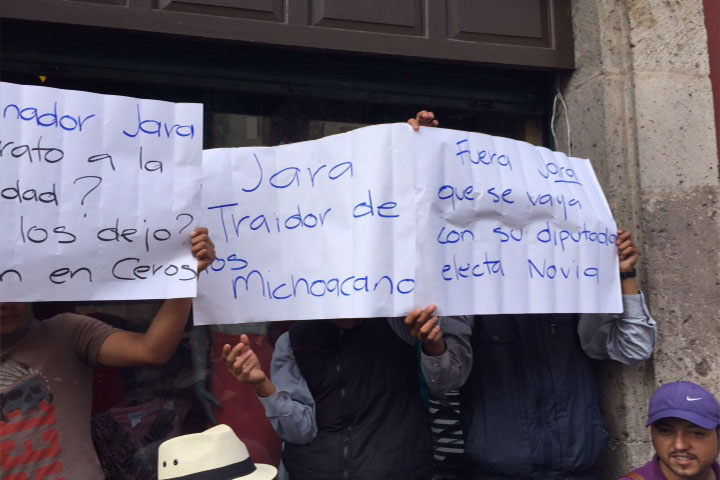 nador Jara
rato a la
dad?
los dejo?
n en Ceros
Jara
Traidor de
los
Michoacano
Fuera Jara
que se vaya
con su diputada
electa Novia